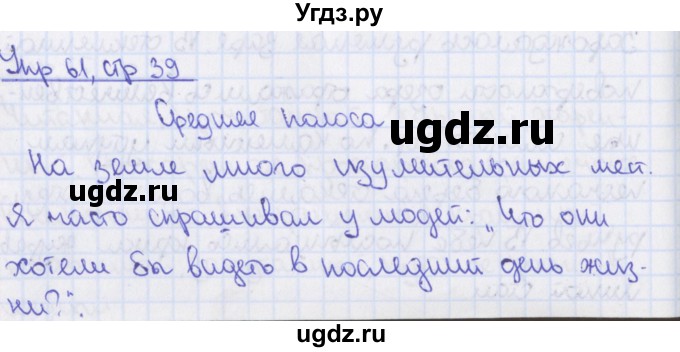 Угдз.ру
Упр 61, стр 39
Средняя полоса
ugdz.ru
На земле много изумительных мест.
ugdz.ru
Я часто спрашивал у людей: „Что они
хотели бы видеть в последний день жиз-
ни?".
ugdz.ru